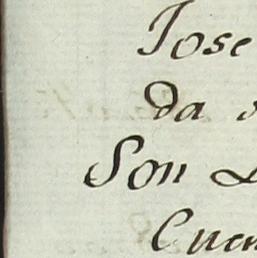 Jose
da
Son
Cuen